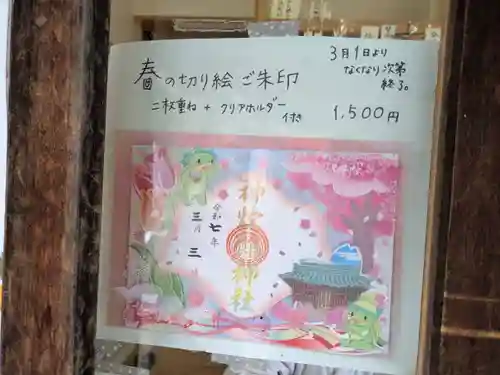 春の切り絵ご朱印
二枚重ね + クリアホルダー
付き
3月1日より
なくなり次第
終了。
1,500円
令和
七年
三月
三
神社